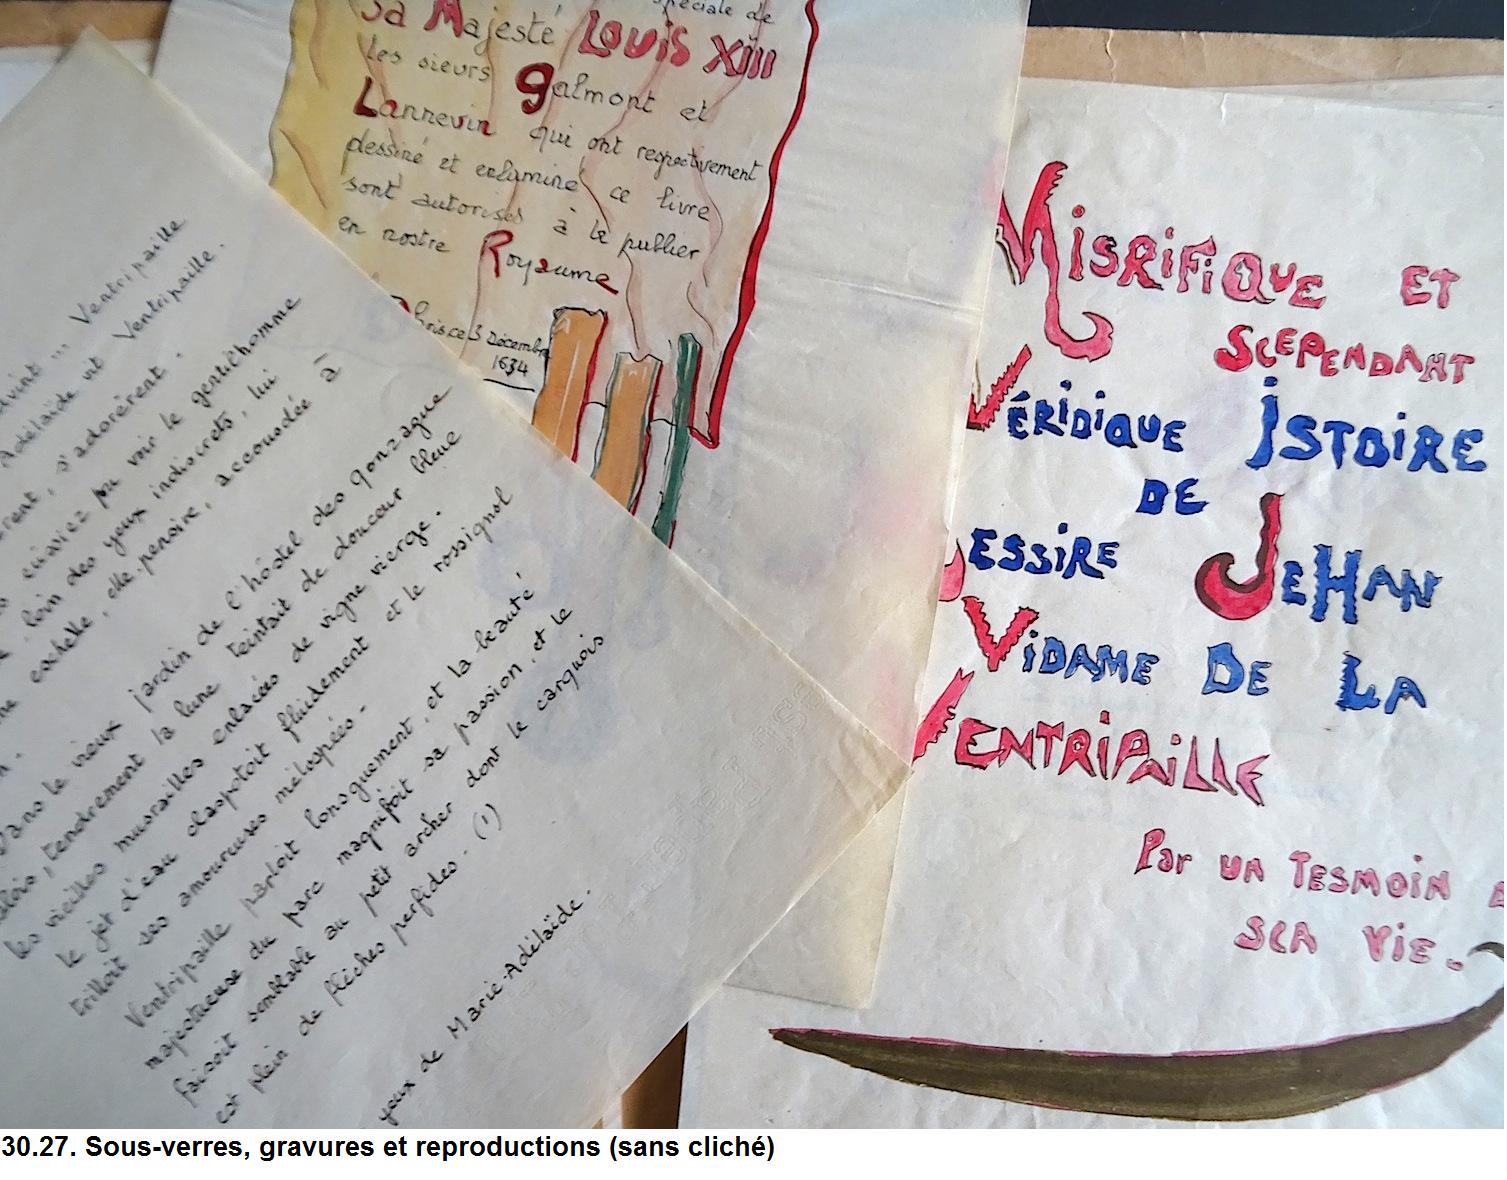 spéciale de
Sa Majesté Louis XIII
les sieurs galmont et
Lannevin qui ont respectivement
dessiné et enluminé ce livre
sont autorisés à le publier
en nostre Royaume
ce 3 Décembre
1634
Misrifique et
scependant
Véridique Istoire
de
Messire Jehan
Vidame de la
Ventripaille
Par un tesmoin
sca vie.
advint ... Ventripaille
Adélaïde vit Ventripaille.
s'adorèrent.
eussiez pu voir le gentilhomme
, loin des yeux indiscrets, lui
cachette, elle, pensive, accoudée à
Dans le vieux jardin de l'hôstel des gonzague
, tendrement la lune teintait de douceur bleue
les vieilles murailles enlacées de vigne vierge.
le jet d'eau clapotoit fluidement et le rossignol
trilloit ses amoureuses mélopées.
Ventripaille parloit longuement, et la beauté
majestueuse du parc magnifioit sa passion, et le
faisoit semblable au petit archer dont le carquois
est plein de flèches perfides. (1)
yeux de Marie-Adélaïde.
30.27. Sous-verres, gravures et reproductions (sans cliché)